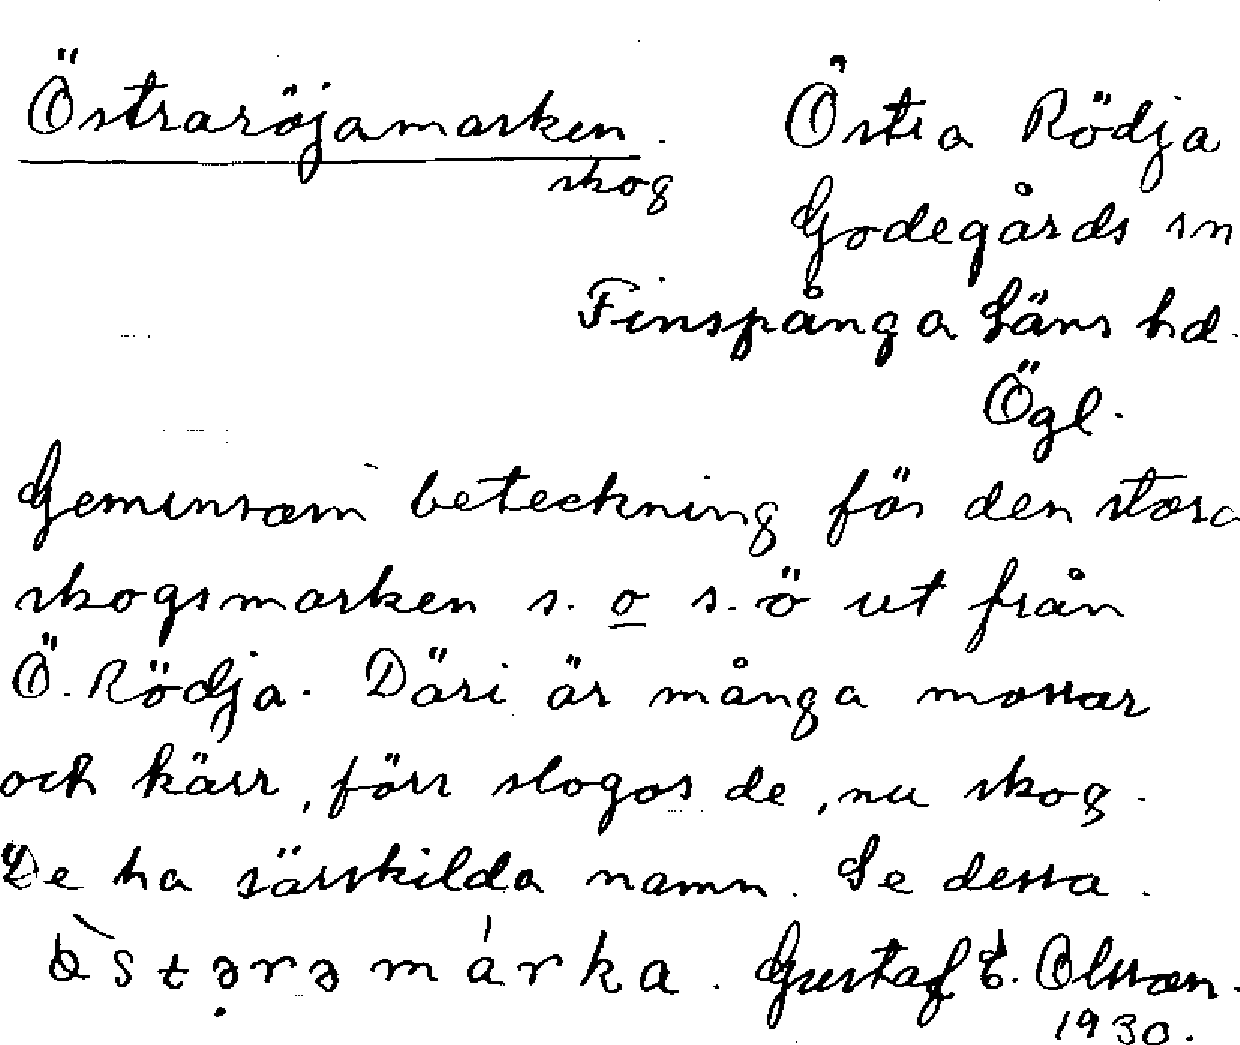 Östraröjamarken.
skog
Östra Rödja
Godegårds sn
Finspånga Läns hd.
Ögl.
Geminsam beteckning för den stora
skogsmarken s. o s.ö ut från
Ö. Rödja. Däri är många mossar
och kärr, förr slogos de, nu skog.
De ha särskilda namn. Se dessa.
marka. Gustaf E. Olsson.
1930.